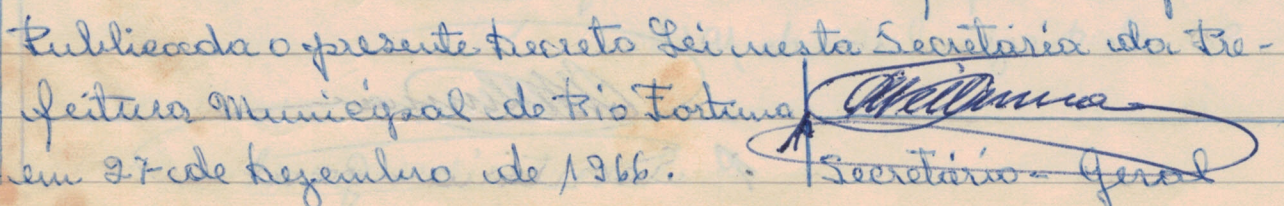 Publicada o presente Decreto Lei nesta Secretária da Pre-
feitura Municipal de Rio Fortuna,
em 27 de Dezembro de 1966.
Secretário - Geral